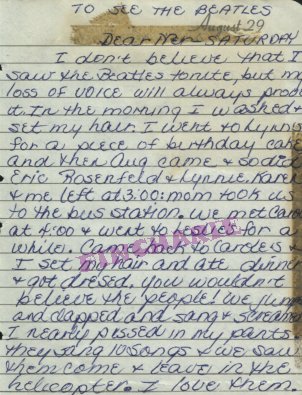 TO SEE THE BEATLES
August 29
Dear New SATURDAY
I don't believe that I
saw the Beatles tonite, but m
loss of voice will always prod
it. In the morning I washed +
set my hair. I went to Lynnis
for a piece of birthday cake
and then Aug came + so did
Eric Rosenfeld + Lynnie. Karen
+ me left at 3:00. mom took us
to the bus station. we met Caro
at 4:00 + went to for a
while. Came back Caroles +
I set my hair and ate dinne
+ got dressed. You wouldn't
believe the people! We jump
and clapped and sang + screame
I nearly pissed in my pants
they sang 10 songs + we saw
them come + leave in the
helicopter. I love them.